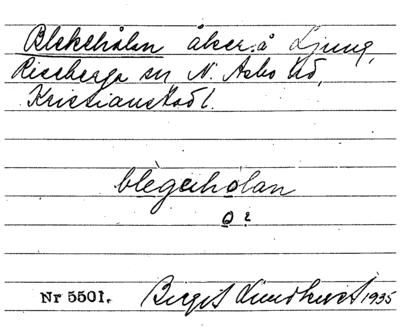 Blekehålan åker å Ljung,
Riseberga sn N. Åsbo hd,
Kristianstad l.
blègehòlan
o 2
Nr 5501. Birgit Lundkvist 1935